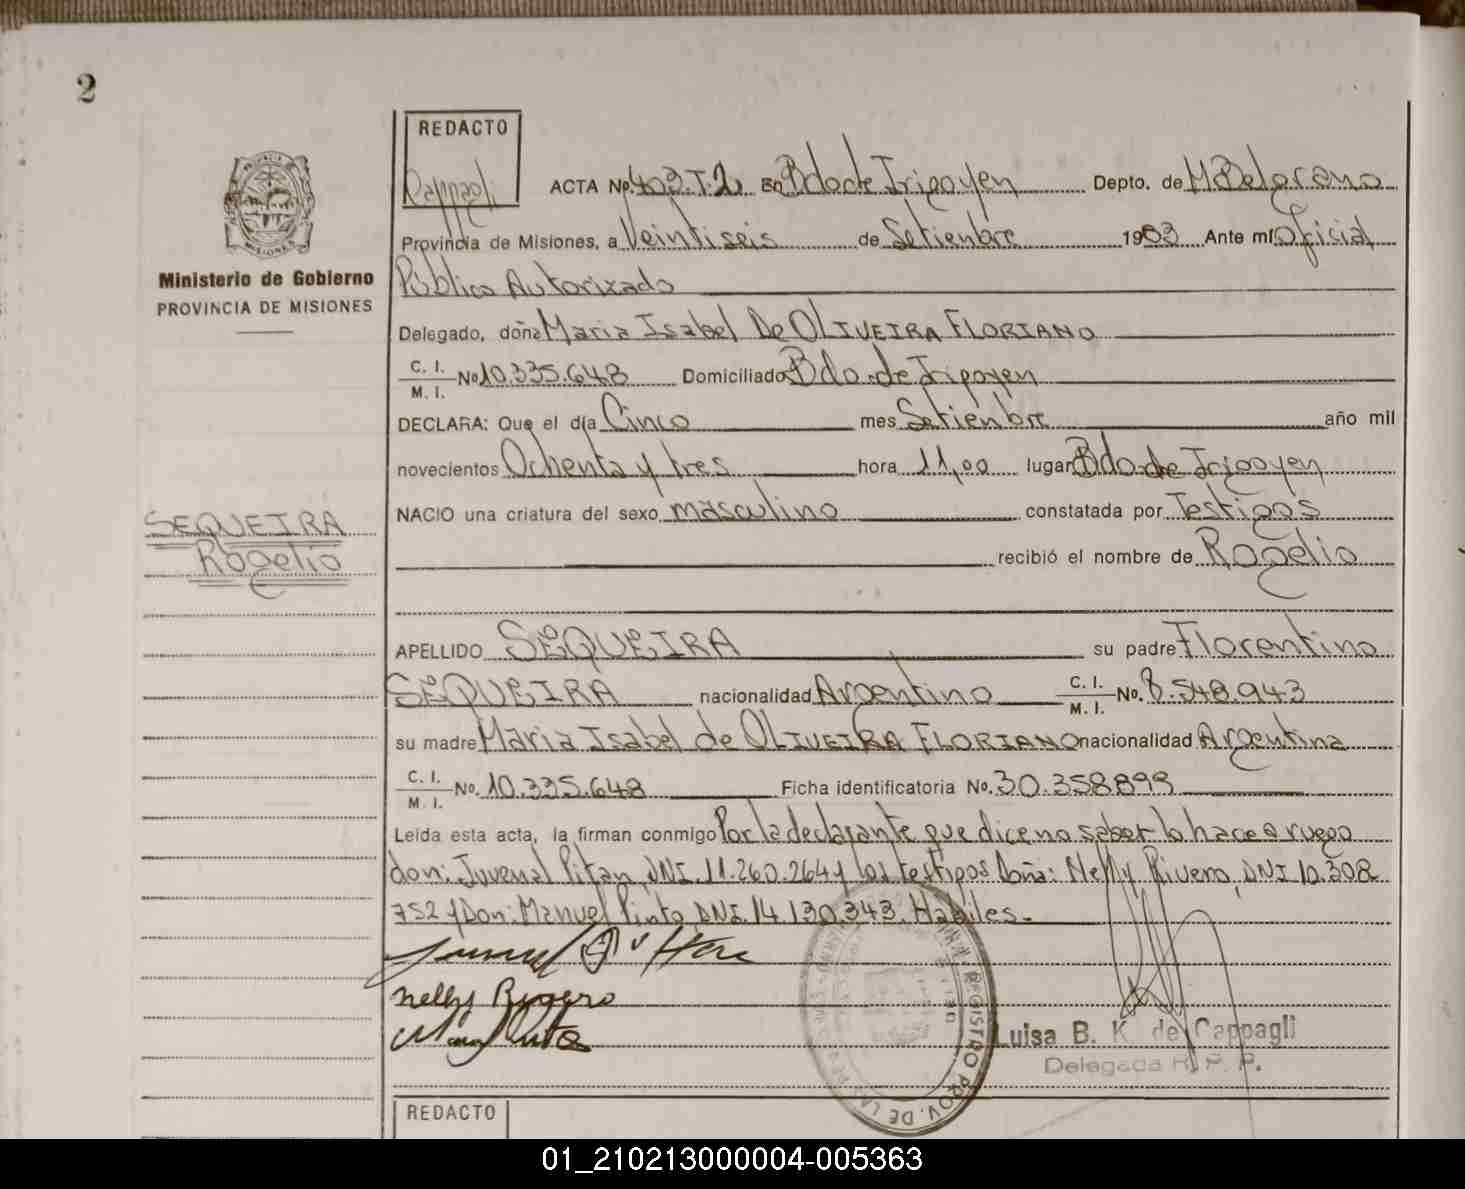 2
REDACTO
Cappagli
ACTA No. 403.T.2 En Bdo de Irigoyen Depto. de M Belgrano
Provincia de Misiones, a Veintiseis de Setiembre 1983 Ante mí Oficial
Público Autorizado
Delegado, doña Maria Isabel De OLIVEIRA FLORIANO
C. I.
M. I. No 10.335.648 Domiciliado Bdo. de Irigoyen
DECLARA: Que el día Cinco mes Setiembre año mil
novecientos Ochenta y tres hora 11,00 lugar Bdo. de Irigoyen
NACIO una criatura del sexo masculino constatada por Testigos
recibió el nombre de Rogelio
APELLIDO SEQUEIRA su padre Florentino
SEQUEIRA nacionalidad Argentino C. I. M. I. No. 8.548.943
su madre Maria Isabel de OLIVEIRA FLORIANO nacionalidad Argentina
C. I.
M. I. No. 10.335.648 Ficha identificatoria No. 30.358.898
Leída esta acta, la firman conmigo Por la declarante que dice no saber lo hace a ruego
don: Juvenal Pitan DNI. 11.260.264 y los testigos Doña: Nelly Rivero, DNI 10.308
752 y Don: Manuel Pinto DNI. 14.130.343. Habiles.-
Nelly Rivero
Luisa B. K. de Cappagli
Delegada R. P. P.
REDACTO
PROVINCIA DE MISIONES
Ministerio de Gobierno
PROVINCIA DE MISIONES
SEQUEIRA
Rogelio
REGISTRO PROV. DE LAS
01_210213000004-005363